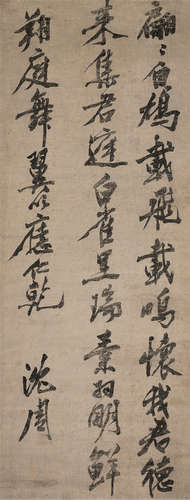 翩〻白鳩載飛載鳴懷我君德
來集君庭白雀呈瑞素羽明鮮
翔庭舞翼以應仁乾
沈周